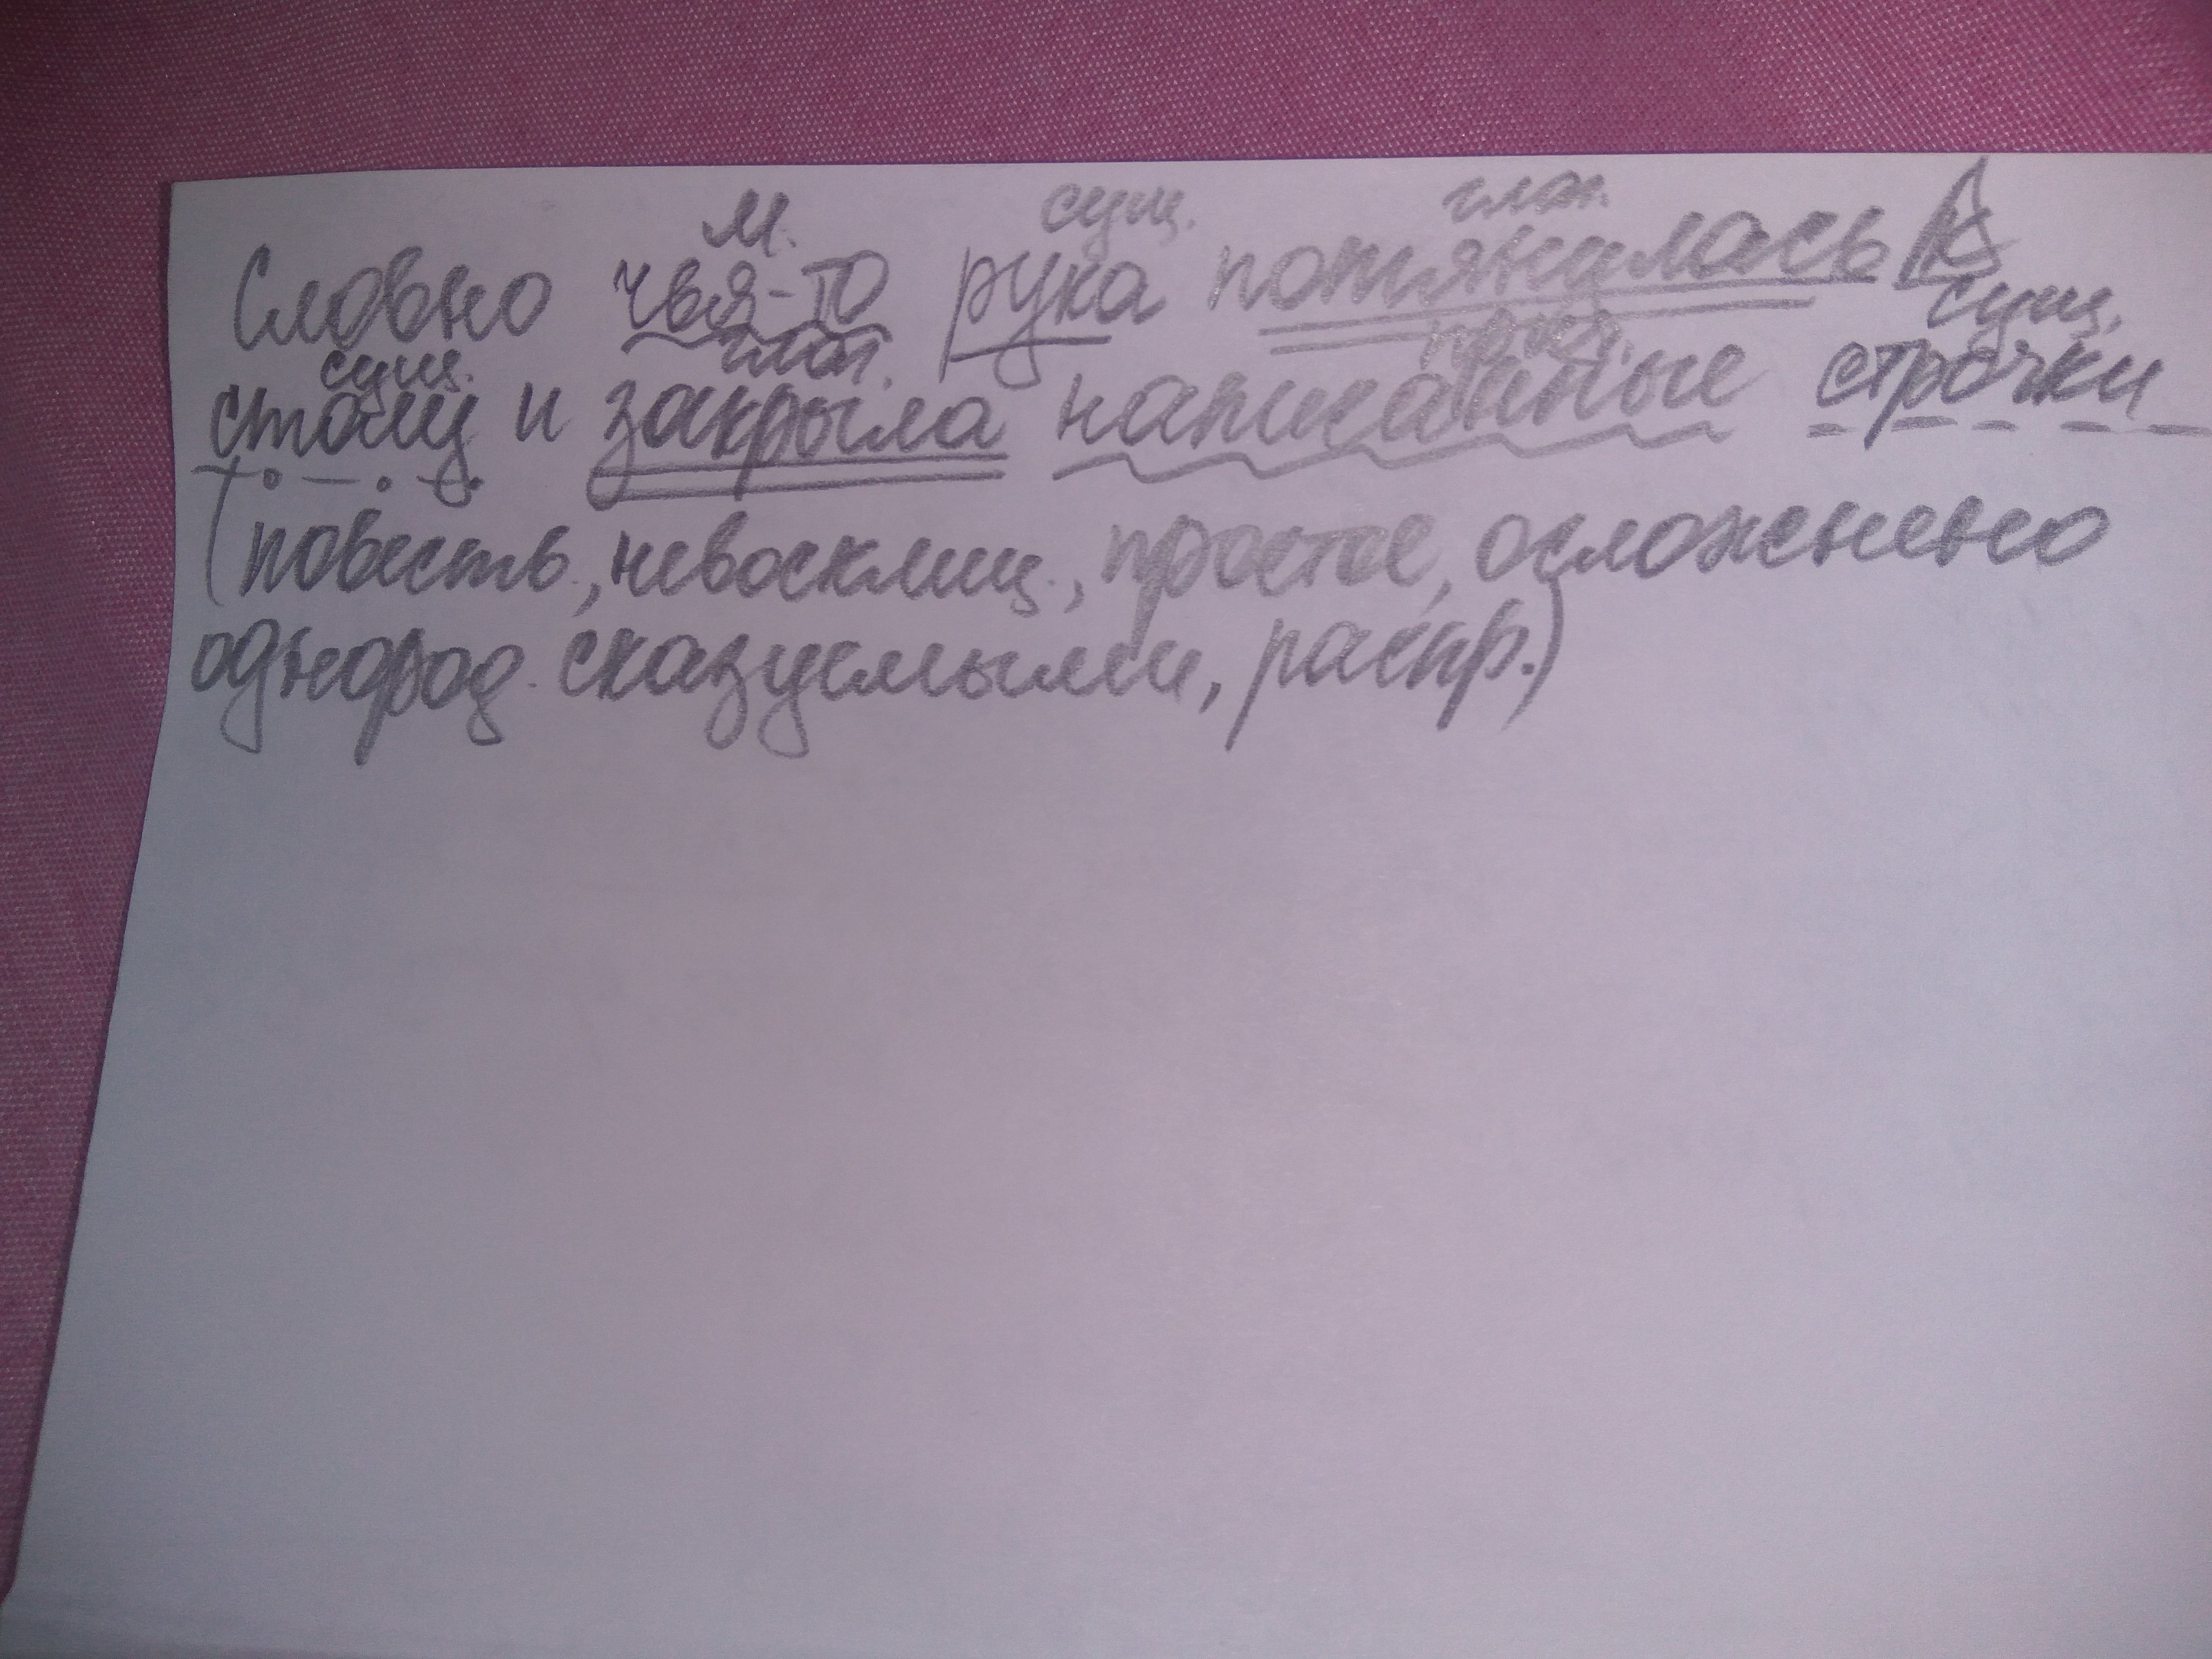 м. сущ. глаг.
Словно чья-то рука потянулась к
сущ. глаг. прил. сущ.
столу и закрыла написанные строчки
(повеств., невосклиц., простое, осложнено
однород. сказуемыми, распр.)